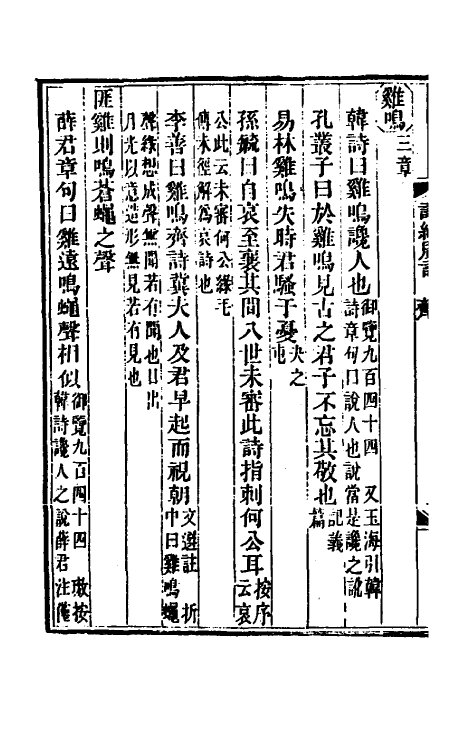 雞鳴三章
韓詩曰雞鳴讒人也御覽九百四十四 又玉海引韓詩章句曰說人也說當是讒之訛
孔叢子曰於雞鳴見古之君子不忘其敬也記義篇
易林雞鳴失時君騷于憂夬之屯
孫毓曰自哀至襄其間八世未審此詩指刺何公耳按序云哀公此云未審何公緣毛傳未徑解為哀詩也
李善曰雞鳴齊詩冀夫人及君早起而視朝文選註 折中曰雞鳴蠅聲緣想成聲無聞若有聞也日出月光以意造形無見若有見也
匪雞則鳴蒼蠅之聲
薛君章句曰雞遠鳴蠅聲相似御覽九百四十四 璈按韓詩讒人之說薛君注僅